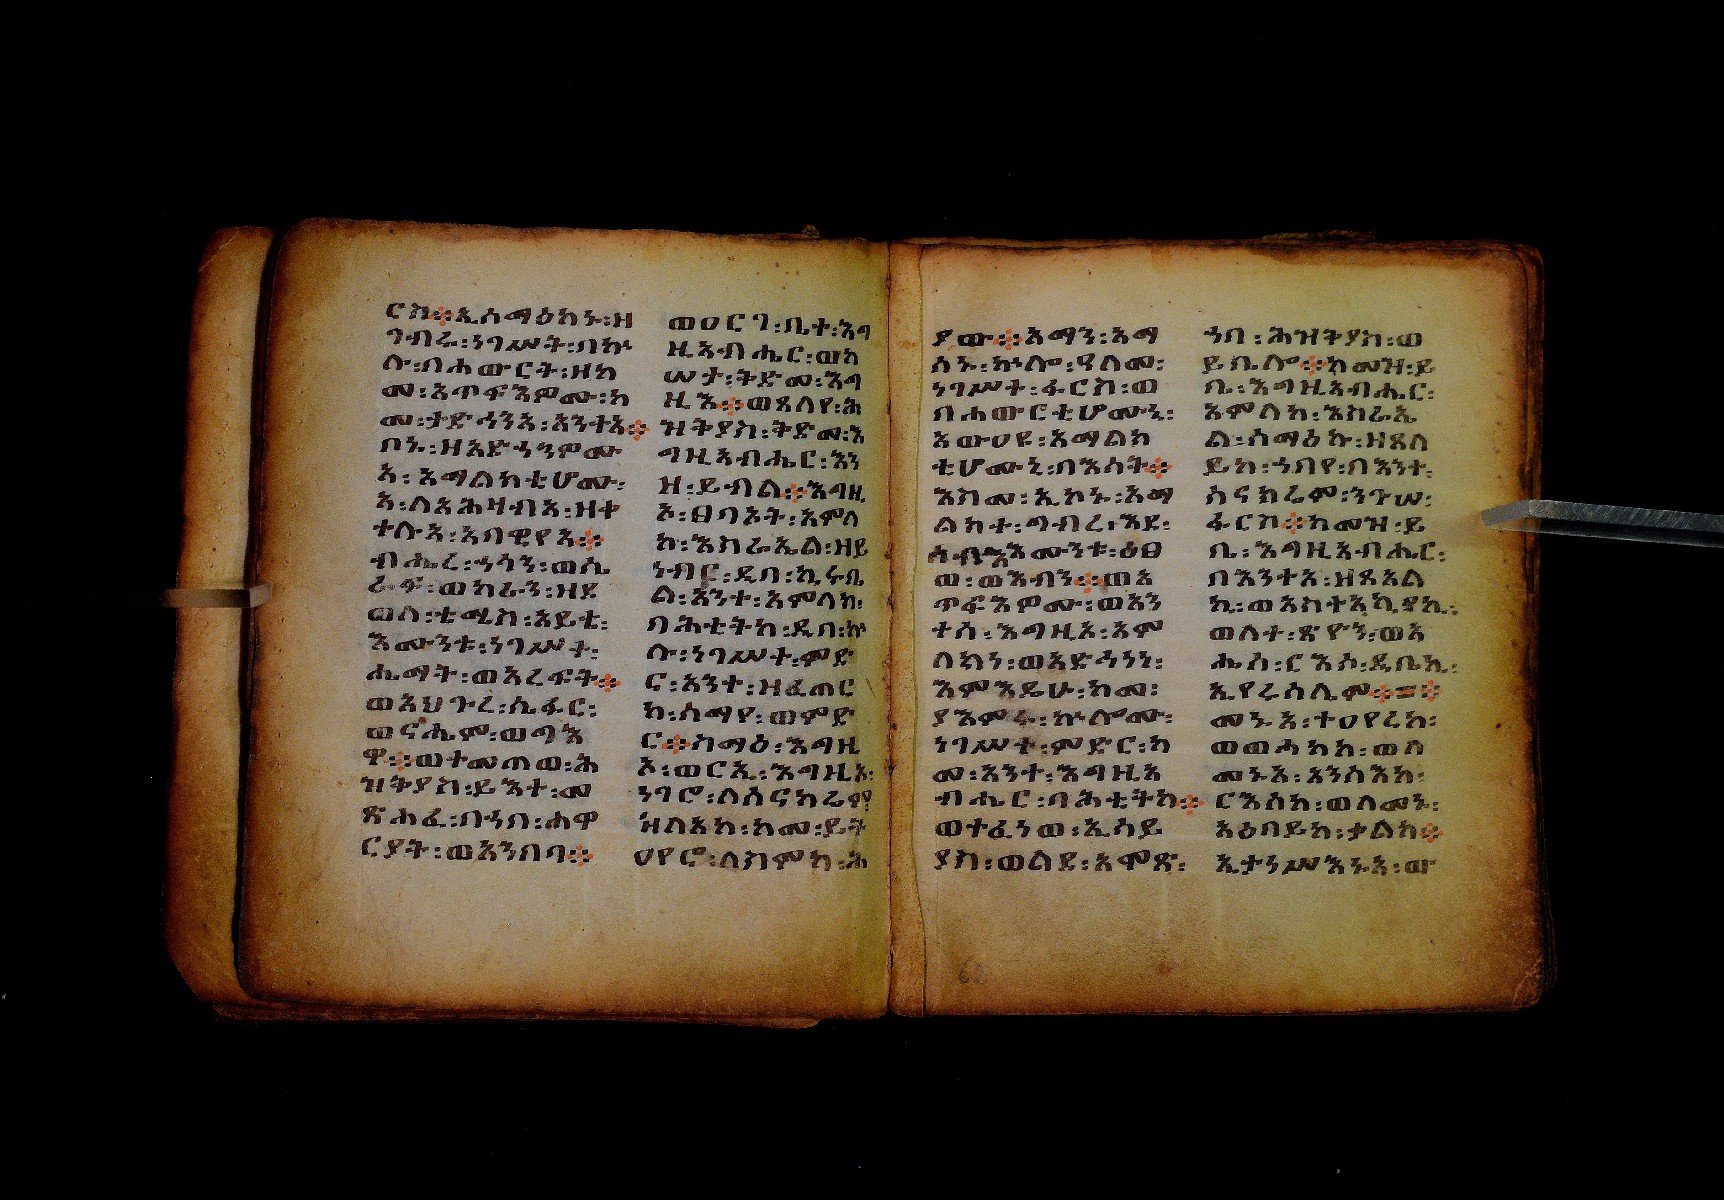 ርስ፨ኢሰማዕከኑ፡ዘ
ገብሩ፡ነገሥት፡በኵ
ሉ፡በሐውርት፡ዘከ
መ፡አጥፍእዎሙ፡ከ
መ፡ታድኅንአ፡አንተአ፨
ቦኑ፡ዘአድኅንዎሙ
አ፡አማልክቲሆሙ፡
አ፡ለአሕዛብአ፡ዘቀ
ተሉአ፡አበዊየአ፨
ብሔረ፡ጎሳን፡ወሲ
ራፍ፡ወከራን፡ዘደ
ወለ፡ቲሚስ፡አይቴ፡
እሙንቱ፡ነገሥተ፡
ሔማት፡ወአረፍት፨
ወአህጉረ፡ሴፋር፡
ወናሔም፡ወግእ
ዋ፨ወተመጠወ፡ሕ
ዝቅያስ፡ይእተ፡መ
ጽሐፈ፡በኀበ፡ሐዋ
ርያት፡ወአንበባ፨
ወዐርገ፡ቤተ፡እግ
ዚአብሔር፡ወከ
ሠታ፡ቅድመ፡እግ
ዚአ፨ወጸለየ፡ሕ
ዝቅያስ፡ቅድመ፡እ
ግዚአብሔር፡እን
ዘ፡ይብል፨እግዚ
አ፡ፀባኦት፡አምላ
ከ፡እስራኤል፡ዘይ
ነብር፡ዲበ፡ኪሩቤ
ል፡አንተ፡አምላክ፡
ባሕቲትከ፡ዲበ፡ኵ
ሉ፡ነገሥተ፡ምድ
ር፡አንተ፡ዘፈጠር
ከ፡ሰማየ፡ወምድ
ር፨ስማዕ፡እግዚ
ኦ፡ወርኢ፡እግዚአ፡
ነገሮ፡ለሰናክሬም
ዘለአከ፡ከመ፡ይት
ዐየሮ፡ለስምከ፡ሕ
ያው፨አማን፡አማ
ሰኑ፡ኵሎ፡ዓለመ፡
ነገሥተ፡ፋርስ፡ወ
በሐውርቲሆሙኒ፡
አውዐዩ፡አማልክ
ቲሆሙኒ፡በእሳት፨
እስመ፡ኢኮኑ፡አማ
ልክተ፡ግብረ፡እደ፡
ሰብእ፡እሙንቱ፡ዕፀ
ወ፡ወእብን፨ወአ
ጥፍእዎሙ፡ወአን
ተሰ፡እግዚአ፡አም
ላክነ፡ወአድኅነነ፡
እምእዴሁ፡ከመ፡
ያእምሩ፡ኵሎሙ፡
ነገሥተ፡ምድር፡ከ
መ፡አንተ፡እግዚአ
ብሔር፡ባሕቲትከ፨
ወተፈነወ፡ኢሳይ
ያስ፡ወልደ፡አሞጽ፡
ኀበ፡ሕዝቅያስ፡ወ
ይቤሎ፨ከመዝ፡ይ
ቤ፡እግዚአብሔር፡
አምላከ፡እስራኤ
ል፡ሰማዕኩ፡ዘጸለ
ይከ፡ኀቤየ፡በእንተ፡
ሰናክሬም፡ንጉሠ፡
ፋርስ፨ከመዝ፡ይ
ቤ፡እግዚአብሔር፡
በእንተአ፡ዘጸአል
ኪ፡ወአስተአኪየኪ፡
ወለተ፡ጽዮን፡ወአ
ሖሰ፡ርእሶ፡ዲቤኪ፡
ኢየሩሳሌም፨=፨
መኑአ፡ተዐየረከ፡
ወወሐከከ፡ወለ
መኑአ፡አንሳእከ፡
ርእሰከ፡ወለመኑ፡
አዕበይከ፡ቃልከ፨
ኢታንሥእኑአ፡ው